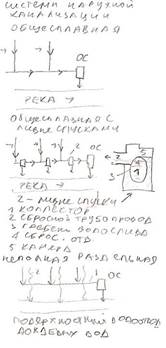 СИСТЕМЫ НАРУЖНОЙ
КАНАЛИЗАЦИИ
ОБЩЕСПЛАВНАЯ
ОС
РЕКА
ОБЩЕСПЛАВНАЯ С
ЛИВНЕСПУСКАМИ
ОС
РЕКА
2 - ЛИВНЕСПУСКИ
1 КОЛЛЕКТОР
2 СБРОСНОЙ ТРУБОПРОВОД
3 ГРЕБЕНЬ ВОДОСЛИВА
4 СБРОС. ОТД.
5 КАМЕРА
НЕПОЛНАЯ РАЗДЕЛЬНАЯ
ОС
ПОВЕРХНОСТНЫЙ ВОДООТВОД
ДОЖДЕВЫХ ВОД